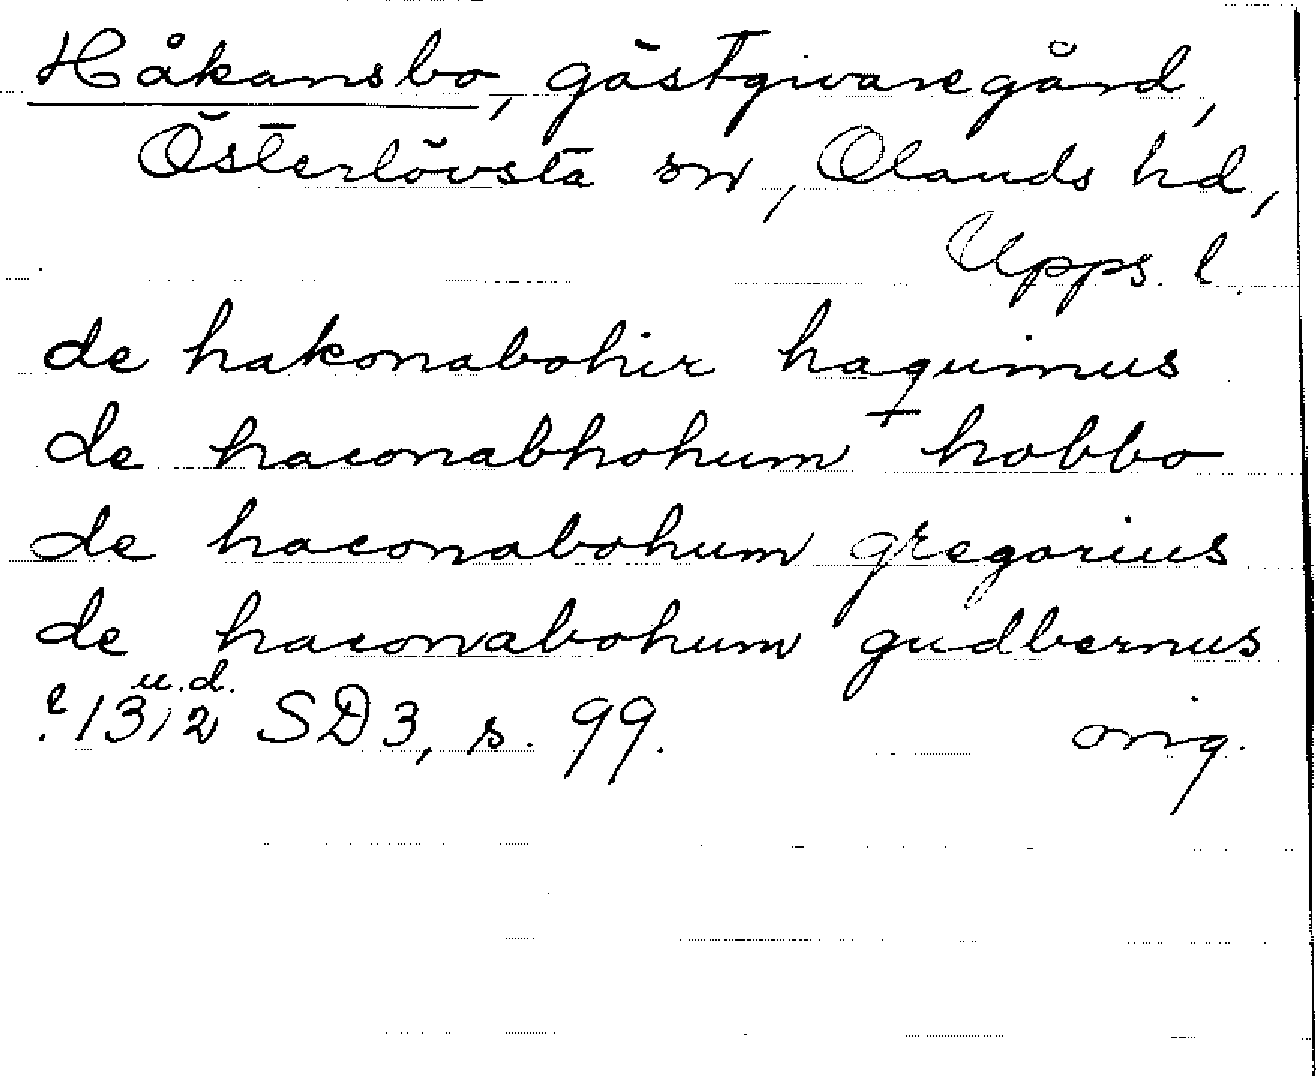 Håkansbo, gästgivaregård,
Österlövsta sn, Olands hd,
Upps. l.
de hakonabohir haquinus
de haconabhohum hobbo
de haconabohum gregorius
de haconabohum gudbernus
u.d.
1312 SD3, s. 99. orig.